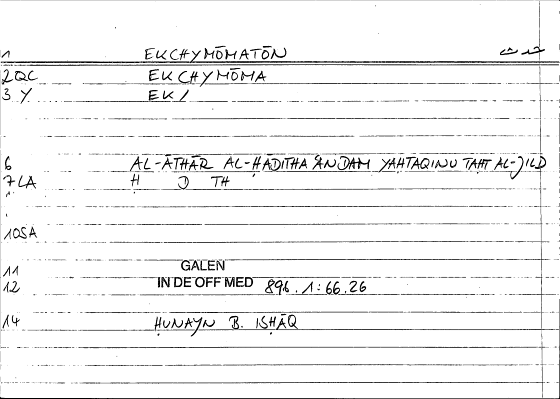 1 EKCHYMŌMATŌN حدث
2QC EKCHYMŌMA
3 Y EK/
6 AL-ĀTHĀR AL-ḤADITHA ʿANDAM YAḤTAQINU TAḤT AL-JILD
7LA Ḥ D TH
10SA
11 GALEN
12 IN DE OFF MED 896.1:66.26
14 ḤUNAYN B. ISḤĀQ